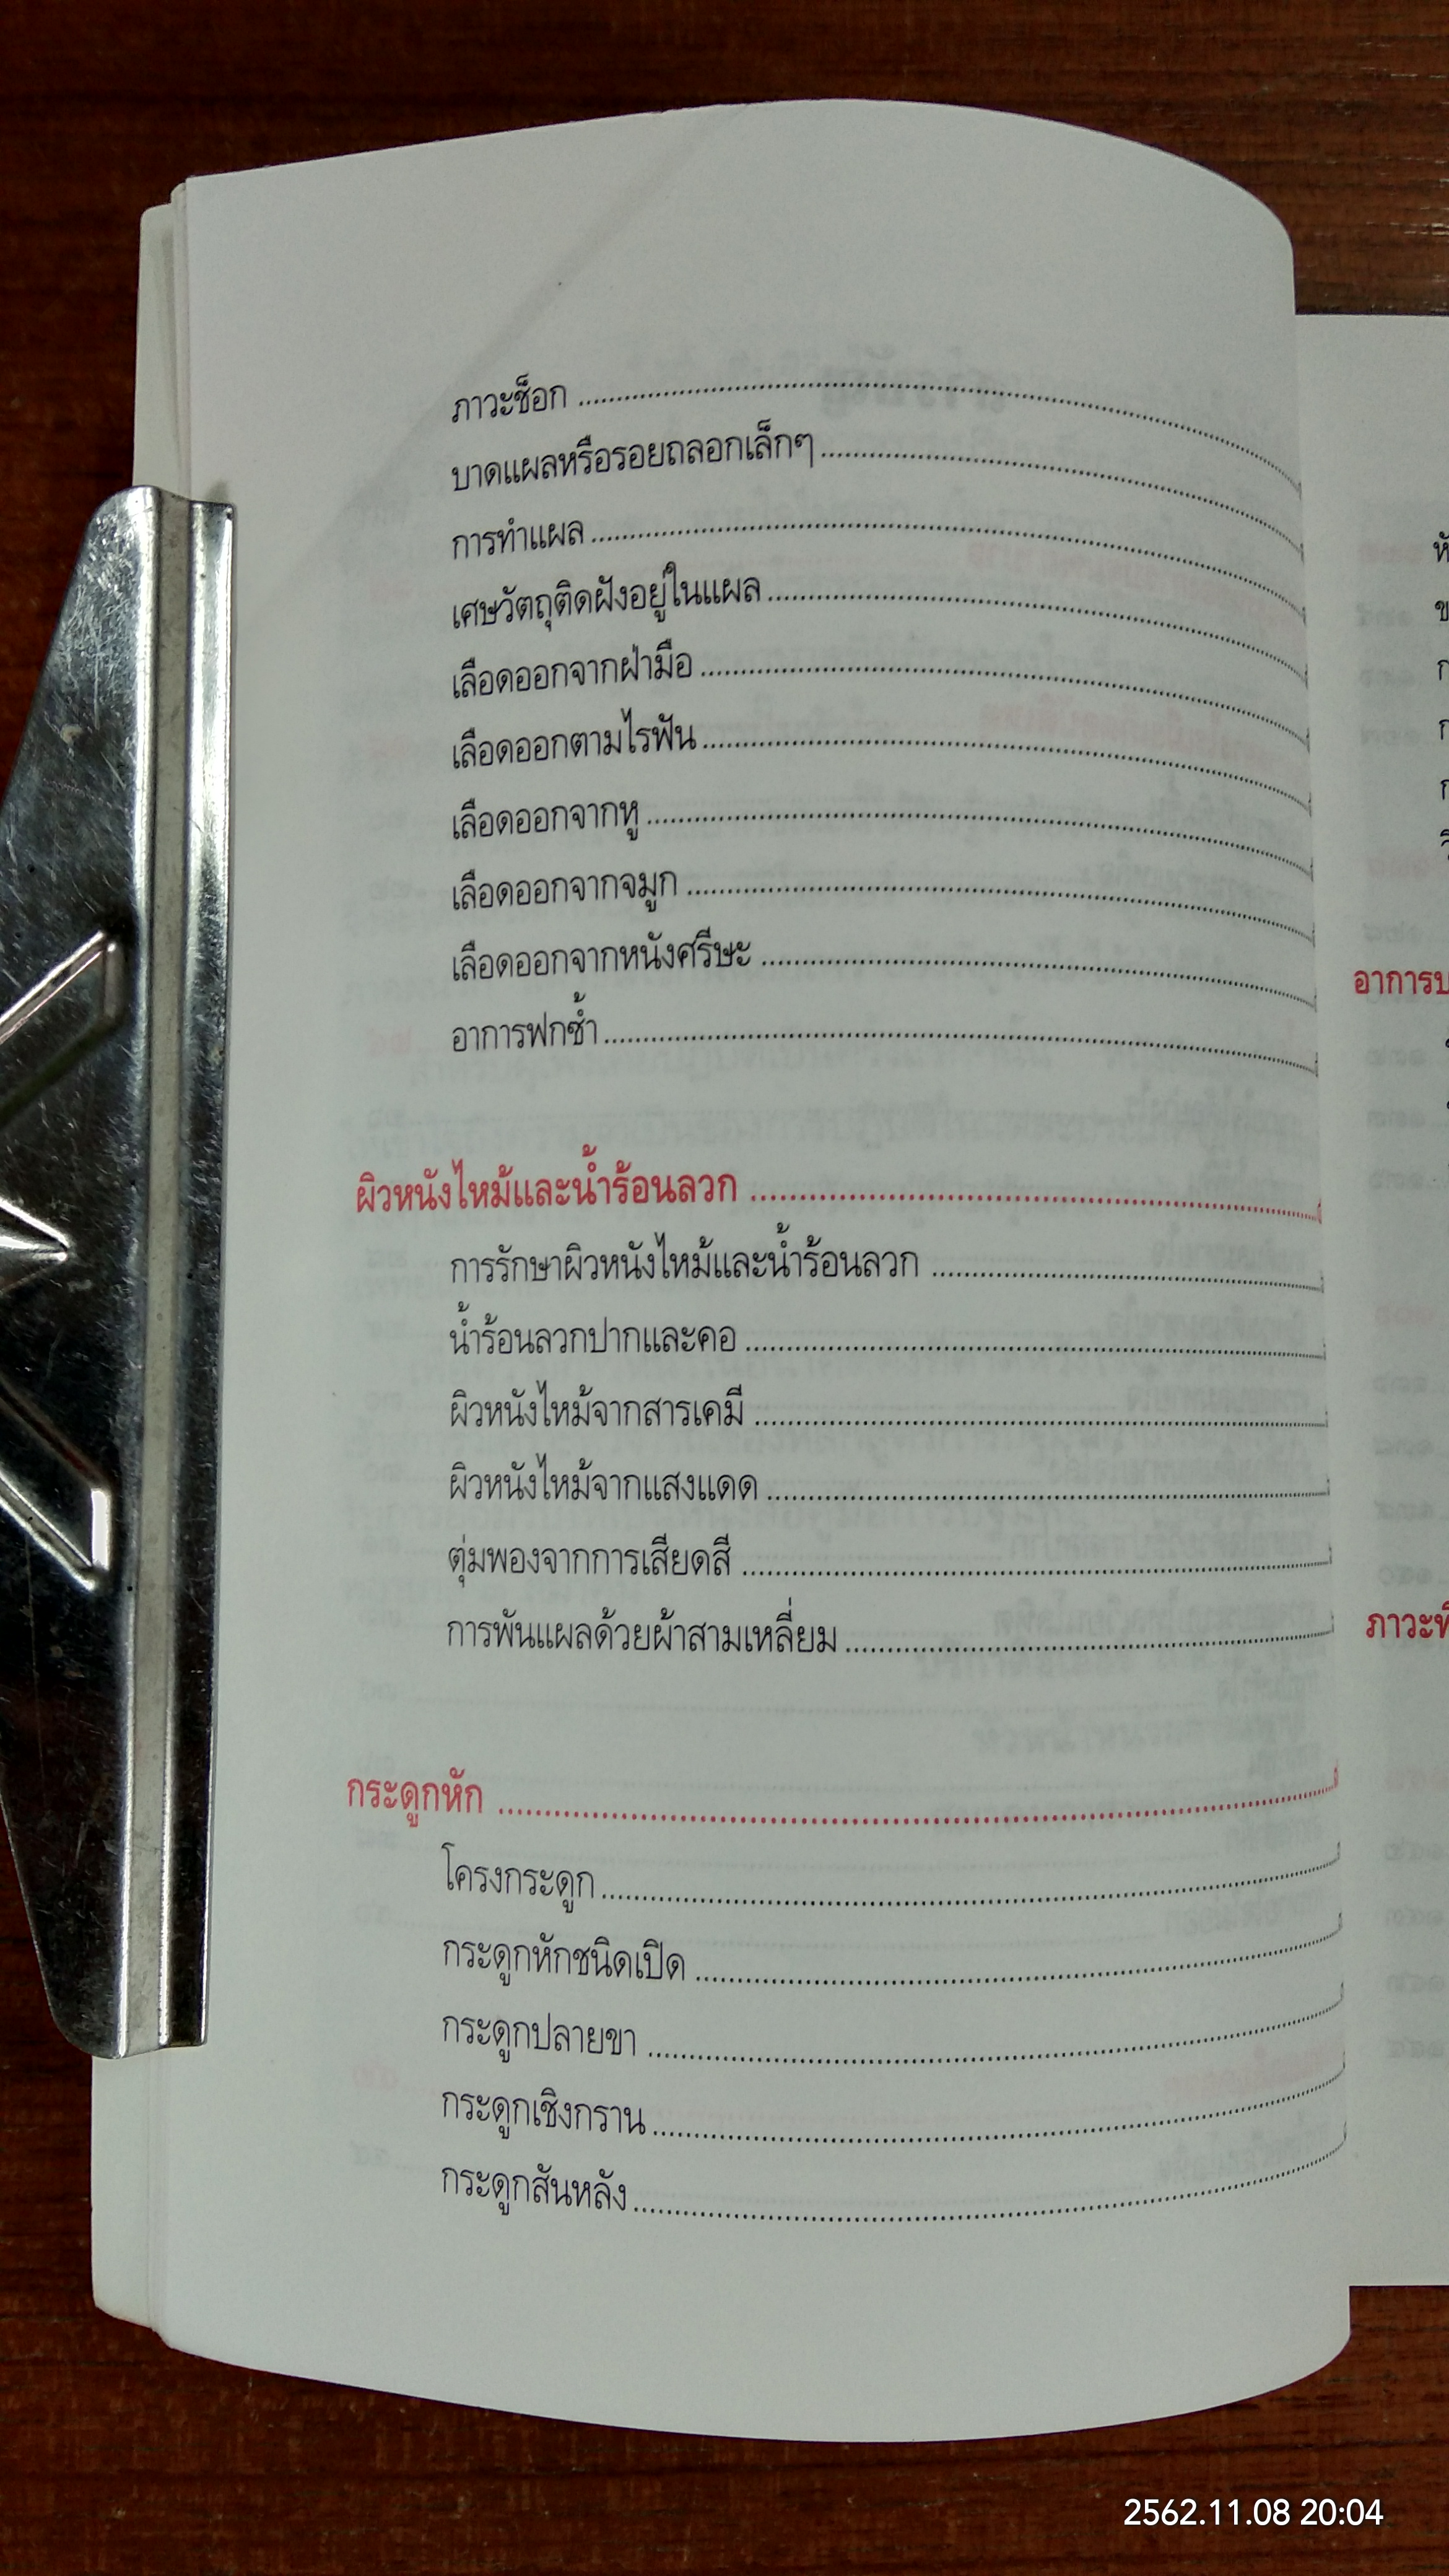 ภาวะช็อก
บาดแผลหรือรอยถลอกเล็กๆ
การทำแผล
เศษวัตถุติดฝังอยู่ในแผล
เลือดออกจากฝ่ามือ
เลือดออกตามไรฟัน
เลือดออกจากหู
เลือดออกจากจมูก
เลือดออกจากหนังศรีษะ
อาการฟกช้ำ
ผิวหนังไหม้และน้ำร้อนลวก
การรักษาผิวหนังไหม้และน้ำร้อนลวก
น้ำร้อนลวกปากและคอ
ผิวหนังไหม้จากสารเคมี
ผิวหนังไหม้จากแสงแดด
ตุ่มพองจากการเสียดสี
การพันแผลด้วยผ้าสามเหลี่ยม
กระดูกหัก
โครงกระดูก
กระดูกหักชนิดเปิด
กระดูกปลายขา
กระดูกเชิงกราน
กระดูกสันหลัง
2562.11.08 20:04